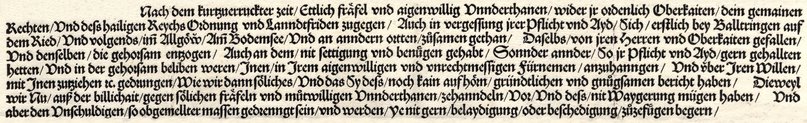 Nach dem kurtzuerruckter zeit / Ettlich fräfel vnd aigenwillig Vnnderthanen / wider jr ordenlich Oberkaiten / dein gemainen
Rechten / Vnd deß hailigen Reychs Ordnung vnd Lanndtfriden zugegen / Auch in vergessung jrer Pflicht vnd Ayd / Sich / erstlich bey Balltringen auff
dem Ried / Vnd volgends / im̃ Allgöw / Am̃ Bodemsee / Vnd an anndern ortten / zůsamen gethan / Daselbs / von jren Herren vnd Oberkaiten gefallen /
Vnd denselben / die gehorsam entzogen / Auch an dem / nit settigung vnd benügen gehabt / Sonnder annder / So jr Pflicht vnd Ayd / gern gehallten
hetten / Vnd in der gehorsam beliben weren / Inen / in Irem aigenwilligen vnd vnrechtmessigen Fürnemen / anzuhanngen / Vnd vber Iren Willen /
mit Inen zuziehen ꝛc. gedrungen / Wie wir dann söliches / Vnd das Sy deß / noch kain auffhörn / gründtlichen vnd gnůgsamen bericht haben / Dieweyl
wir Nu / auß der billichait / gegen sölichen fräfeln vnd můtwilligen Vnnderthanen / zehanndeln / Vor / Vnd deß / nit Waygerung mügen haben / Vnd
aber den Vnschuldigen / so obgemellter massen gedrenngt sein / vnd werden / Ye nit gern / belaydigung / oder beschedigung / zůzefügen begern /